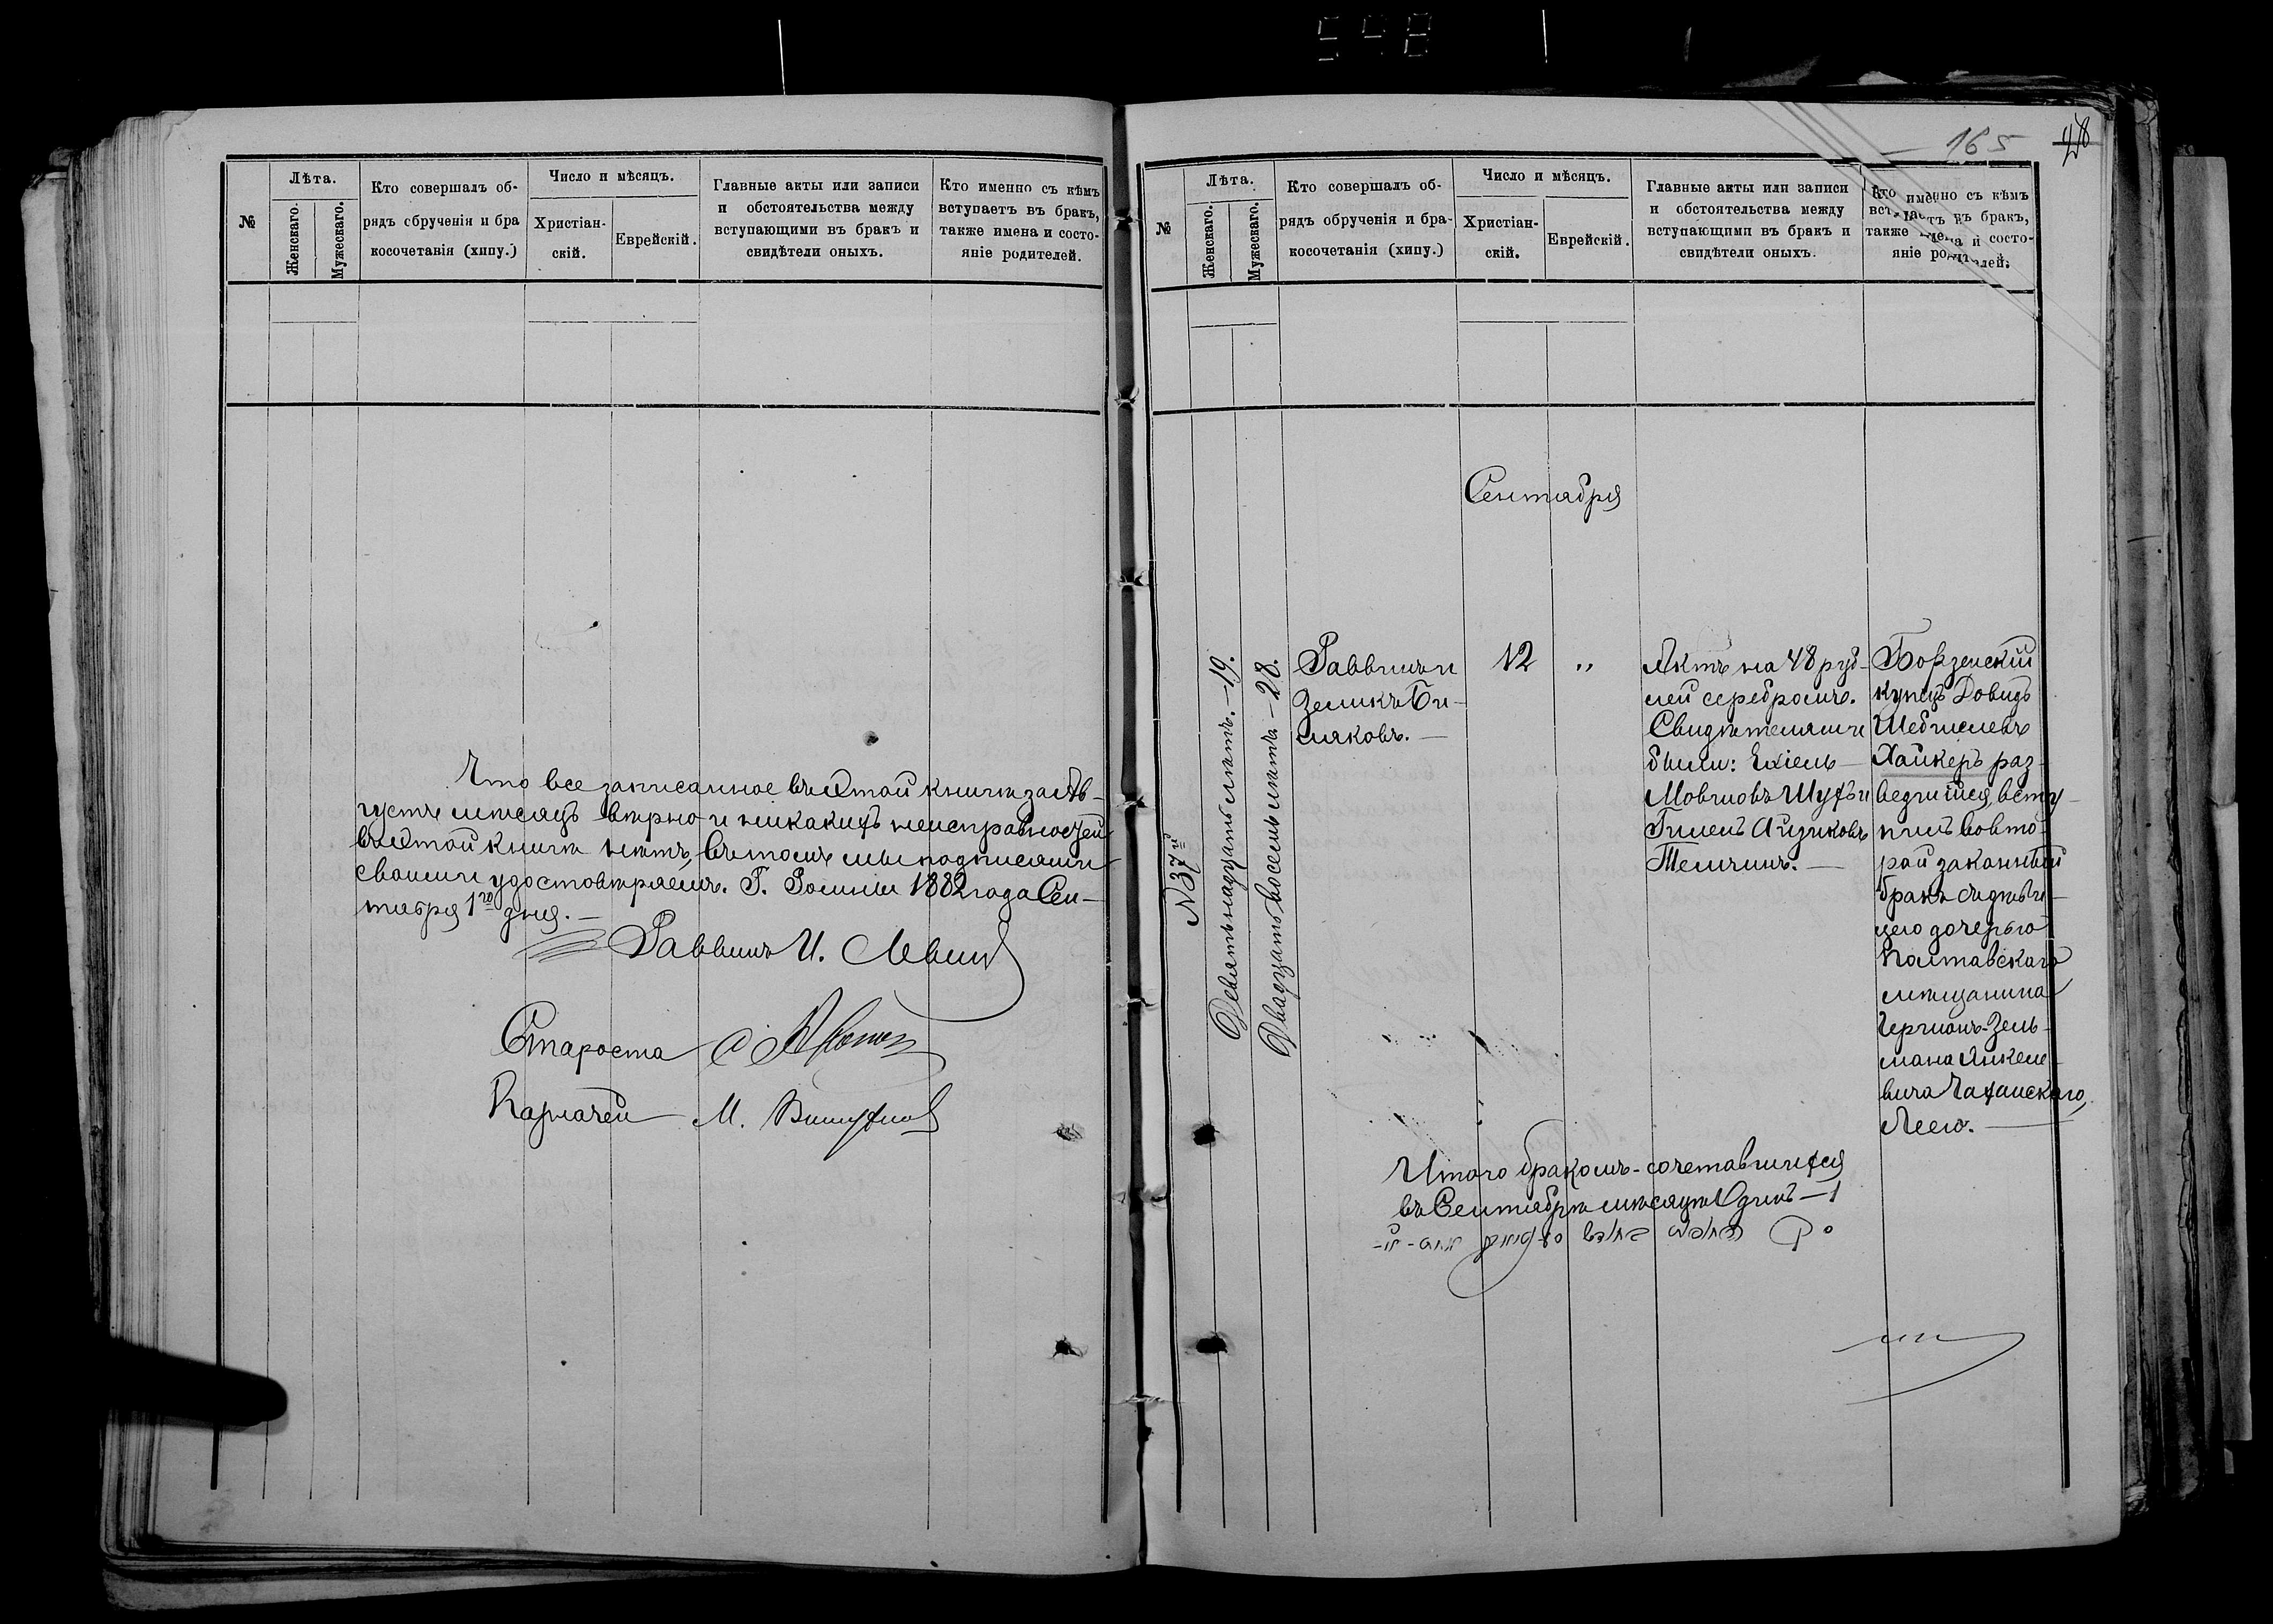 548
№
Лѣта.
Женскаго.
Мужескаго.
Кто совершалъ об-
рядъ обрученія и бра
косочетанія (хипу.)
Число и мѣсяцъ.
Христіан-
скій.
Еврейскій.
Главные акты или записи
и обстоятельства между
вступающими въ бракъ и
свидѣтели оныхъ.
Кто именно съ кѣмъ
вступаетъ въ бракъ,
также имена и состо-
яніе родителей.
Что все записанное въ этой книгѣ за Ав-
густъ мѣсяцъ вѣрно и никакихъ неисправностей
въ этой книгѣ нѣтъ, въ томъ мы подписями
своими удостовѣряемъ. Г. Ромны 1882 года Сен-
тября 1го дня.—
Раввинъ И. Левин
Староста
Казначей М.
165
№
Лѣта.
Женскаго.
Мужескаго.
Кто совершалъ об-
рядъ обрученія и бра-
косочетанія (хипу.)
Число и мѣсяцъ.
Христіан-
скій.
Еврейскій.
Главные акты или записи
и обстоятельства между
вступающими въ бракъ и
свидѣтели оныхъ.
Кто именно съ кѣмъ
вступаетъ въ бракъ,
также имена и состо-
яніе родителей.
Сентября
№ 37й
Девятнадцать лѣтъ.—19.
Двадцать восемь лѣтъ—28.
Раввинъ
Зеликъ Би-
ляковъ.—
12
"
Актъ на 48 руб-
лей серебромъ.
Свидѣтелями
были: Ехіель
Мовшовъ Шуфъ и
Гилелъ Айзиковъ
Темчинъ.—
Борзенскій
купецъ Довидъ
Шебшелевъ
Хайкеръ раз-
ведшійся, всту-
пилъ во вто-
рой законный
бракъ съ дѣви-
цею дочерью
Полтавскаго
мѣщанина
Гершонъ-Зель-
мана Янкеле-
вича Чаганскаго,
Леею.—
Итого бракомъ-сочетавшихся
въ Сентябрѣ мѣсяцѣ Одинъ—1